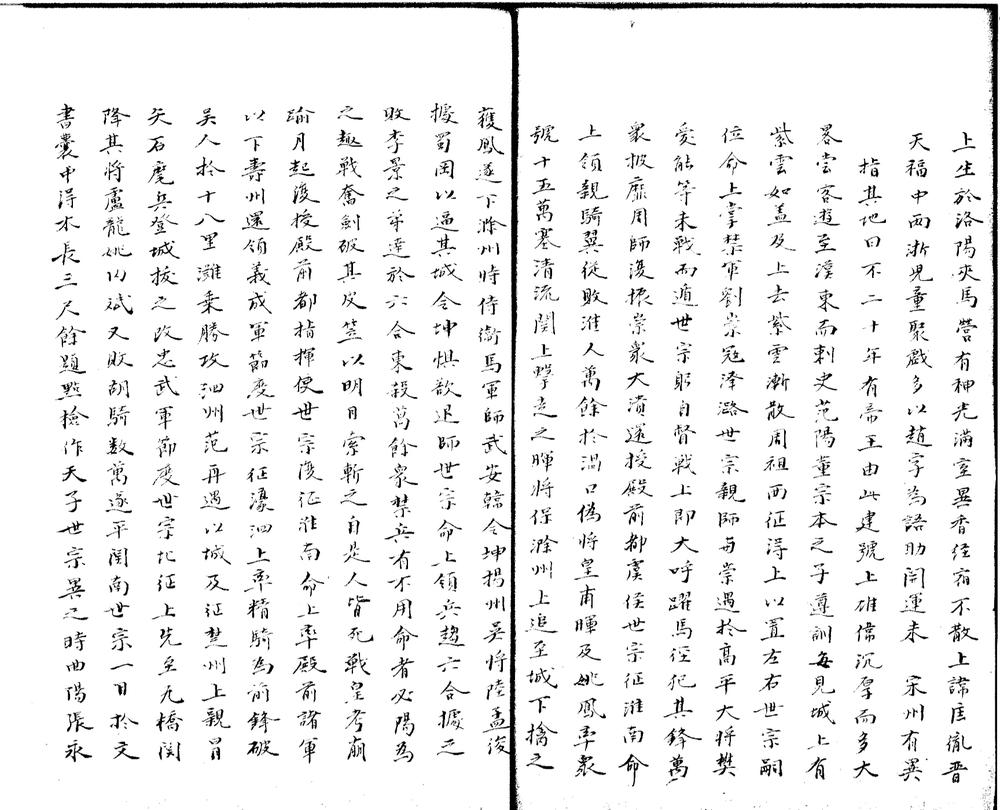 上生於洛陽夾馬營有神光滿室異香径宿不散上諱匡胤晉
天福中兩浙児童聚戲多以趙字為語助開運末　宋州有異
指其地曰不二十年有帝王由此建號上雄偉沉厚而多大
畧嘗客遊至漢東而刺史范陽董宗本之子遵訓每見城上有
紫雲如盖及上去紫雲漸散周祖西征淂上以置左右世宗嗣
位命上掌禁軍劉崇冦泽潞世宗親師与崇遇於高平大将樊
愛能等未戰而遁世宗躬自督戰上即大呼躍馬径犯其鋒萬
衆披靡周師復振崇衆大潰還授殿前都虞侯世宗征淮南命
上領親騎翼從敗淮人萬餘於渦口偽将皇甫暉及姚鳳率衆
號十五萬塞清流関上擊走之暉将保滁州上追至城下擒之
獲鳳遂下滁州時侍衛馬軍師武安韓令坤揚州吴将陸孟俊
據蜀岡以逼其城令坤惧欲退師世宗命上領兵趨六合據之
敗李景之弟達於六合東殺萬餘衆禁兵有不用命者必陽為
之趣戰奮劍破其皮笠以明日索斬之自是人皆死戰皇考崩
踰月起復授殿前都指揮使世宗復征淮南命上率殿前諸軍
以下壽州還領義成軍節度世宗征濠泗上率精騎為前鋒破
吴人於十八里灘乗勝攻泗州范再遇以城及征楚州上親冐
矢石麾兵登城拔之改忠武軍節度世宗北征上先至瓦橋関
降其将盧龍姚内斌又敗胡騎数萬遂平関南世宗一日於文
書囊中淂木長三尺餘題㸃檢作天子世宗異之時曲陽張永